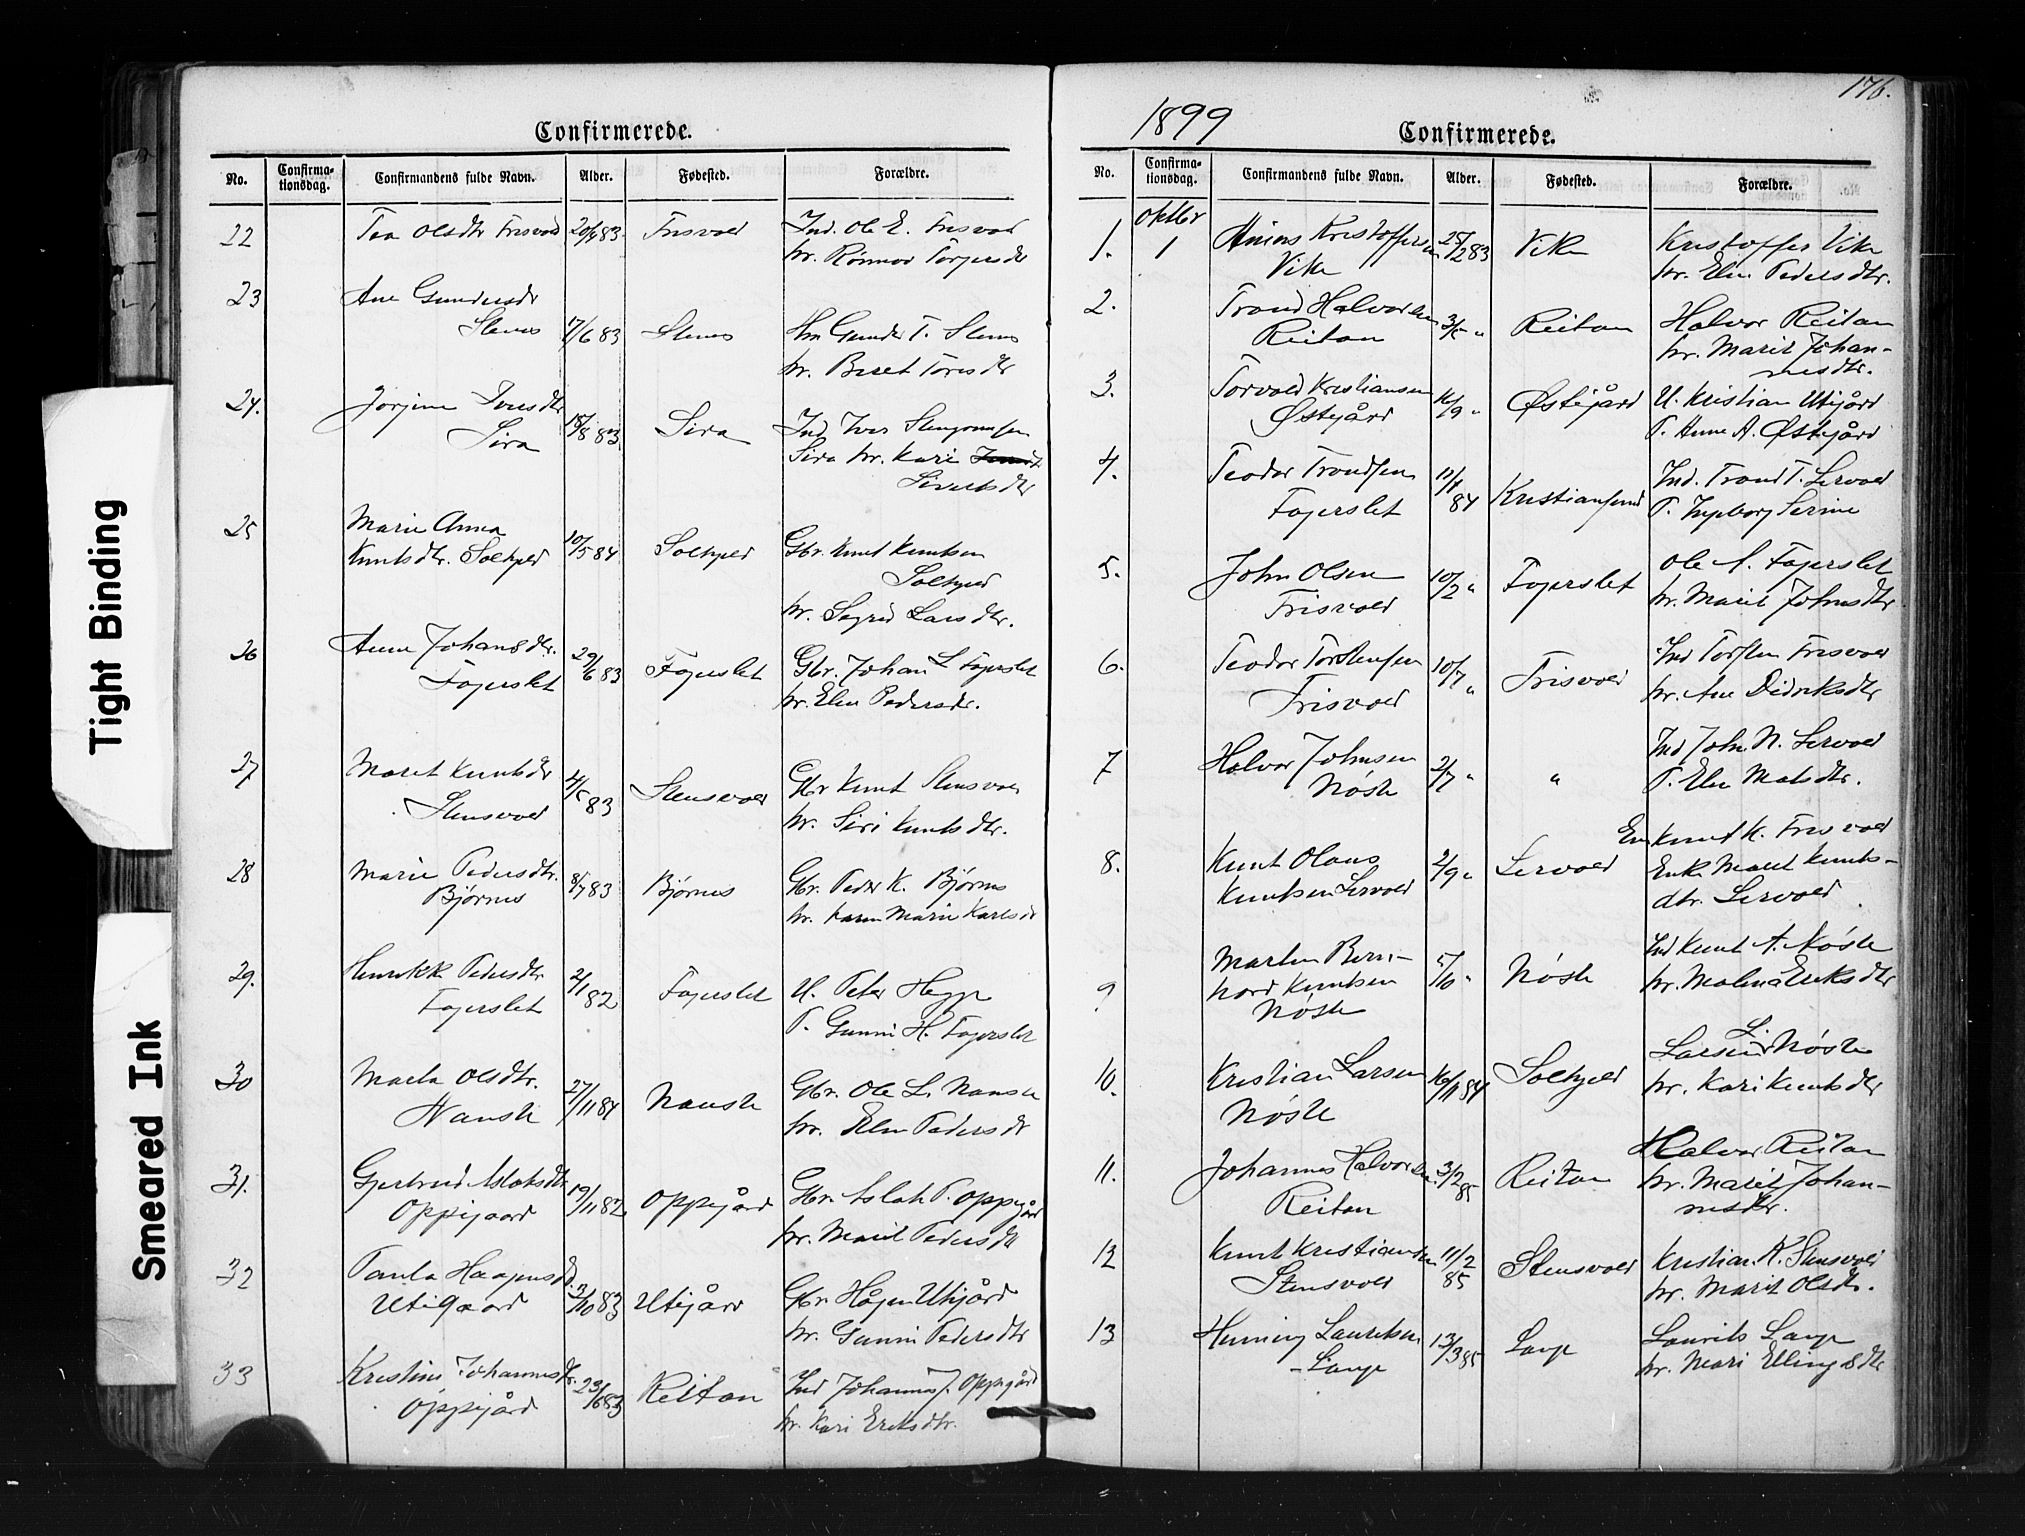 Tight Binding
Smeared Ink
Confirmerede.
No. Confirma-tionsdag. Confirmandens fulde Navn. Alder. Fødested. Forældre.
22 Olsdtr Frisvold 20/4 83 Frisvold Ind. Ole E. Frisvold
hr. Torgersdtr
23 Ane Gundersdtr
Stenes 17/6 83 Stenes Gunder T. Stenes
hr. Beret Toresdtr
24. Jorgine Iversdtr
Sira 15/8 83 Sira Ind Iver
Sira hr. Kari
Sivertsdtr
25 Marie Anna
Knutsdtr. Solhjeld 10/5 84 Solhjeld Gbr. Knut Knutsen
Solhjeld
hr. Sigrid Larsdtr.
26 Ane Johansdtr.
Fogerslet 29/6 83 Fogerslet Gbr. Johan L Fogerslet
hr. Elen Pedersdtr.
27 Maret Knutsdtr
Stensvold 83 Stensvold Gbr Knut Stensvold
hr. Siri Knutsdtr.
28 Marie Pedersdtr.
Bjørnes 8/7 83 Bjørnes Gbr. Peder K. Bjørnes
hr. Karen Marie Karlsdtr
29. Henrikke Pedersdtr
Fogerslet 2/1 82 Fogerslet U. Peter
P. Gunni H. Fogerslet
30 Marta Olsdtr.
Nauste 27/11 84 Nauste Gbr. Ole L. Nauste
hr. Elen Pedersdtr
31. Gjertrud Aslaksdtr
Oppigaard 19/11 82 Oppigård Gbr. Aslak P. Oppigård
hr. Marit Pedersdtr
32 Paula Haagensd
Utigaard 3/10 83 Utigård Gbr. Hågen Utigård
hr. Gunni Pedersdtr
33 Kristine Johannesdtr.
Oppigård 23/6 83 Reitan Ind Johannes J. Oppigård
hr. Kari Eriksdtr.
1899
176.
Confirmerede.
No. Confirma-tionsdag. Confirmandens fulde Navn. Alder. Fødested. Forældre.
Oktbr
1. 1 Kristoffersen 25/2 83 Vike Kristoffer Vike
Vike hr. Elen Pedersdtr.
2. Trond Halvorsen
Reitan 3/5 " Reitan Halvor Reitan
hr. Marit Johan-
nesdtr.
3. Torvald Kristiansen
Østigård 16/9 " Østigård U. Kristian Utigård
P. Anne A. Østigård
4. Teodor Trondsen
Fogerslet 11/1 84 Kristiansund Ind. Trond T. Lervold
P. Ingborg Serine
5. John Olsen
Frisvold 10/2 " Fogerslet Ole A. Fogerslet
hr. Marit Johnsdtr
6. Teodor Torstensen
Frisvold 10/7 " Frisvold Ind Torsten Frisvold
hr. Ane Didriksdtr
7 Halvor Johnsen
Nøste 2/7 " " Ind John N. Lervold
P. Elen Matsdtr.
8. Knut Olaus
Knutsen Lervold 2/9 " Lervold Em Knut K. Frisvold
Enke Maret Knuts-
dtr. Lervold
9 Martin Bern-
hard Knutsen
Nøste 5/10 " Nøste Ind Knut A. Nøste
hr. Malena Eriksdtr
10. Kristian Larsen
Nøste 16/11 84 Solhjeld Nøste
hr. Kari Knutsdtr
11. Johannes Halvorsen
Reitan 3/2 85 Reitan Halvor Reitan
hr. Marit Johan-
nesdtr.
12 Knut Kristiansen
Stensvold 11/2 85 Stensvold Kristian K. Stensvold
hr. Marit Olsdtr.
13 Henning Lauritsen
Lange 13/3 85 Lange Laurits Lange
hr. Mari Ellingsdtr